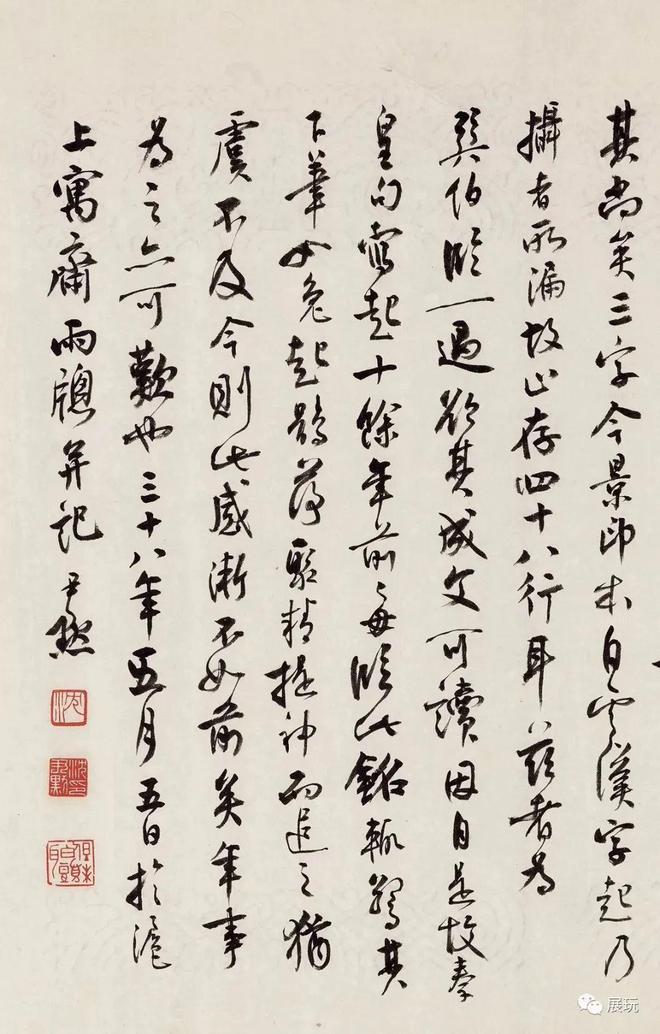 其尚矣三字今景印本自雲漢字起乃
攝者所漏故止存四十八行耳茲者為
巽伯臨一過欲其成文可讀因自是故秦
皇句寫起十餘年前每臨此銘輒驚其
下筆如兔起鶻落聚精提神而追之猶
虞不及今則此感漸不如前矣年事
為之亦可歎也三十八年五月五日於滬
上寓齋雨窗并記 尹默
沈
展玩